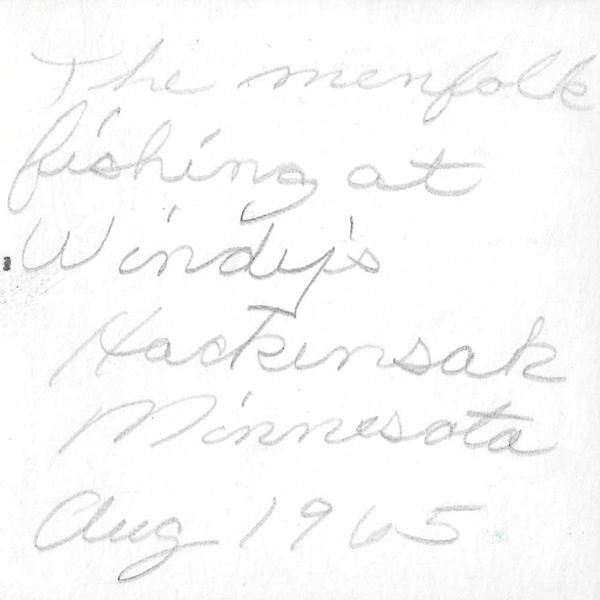 The menfolk
fishing at
Windy's
Hackinsak
Minnesota
Aug 1965